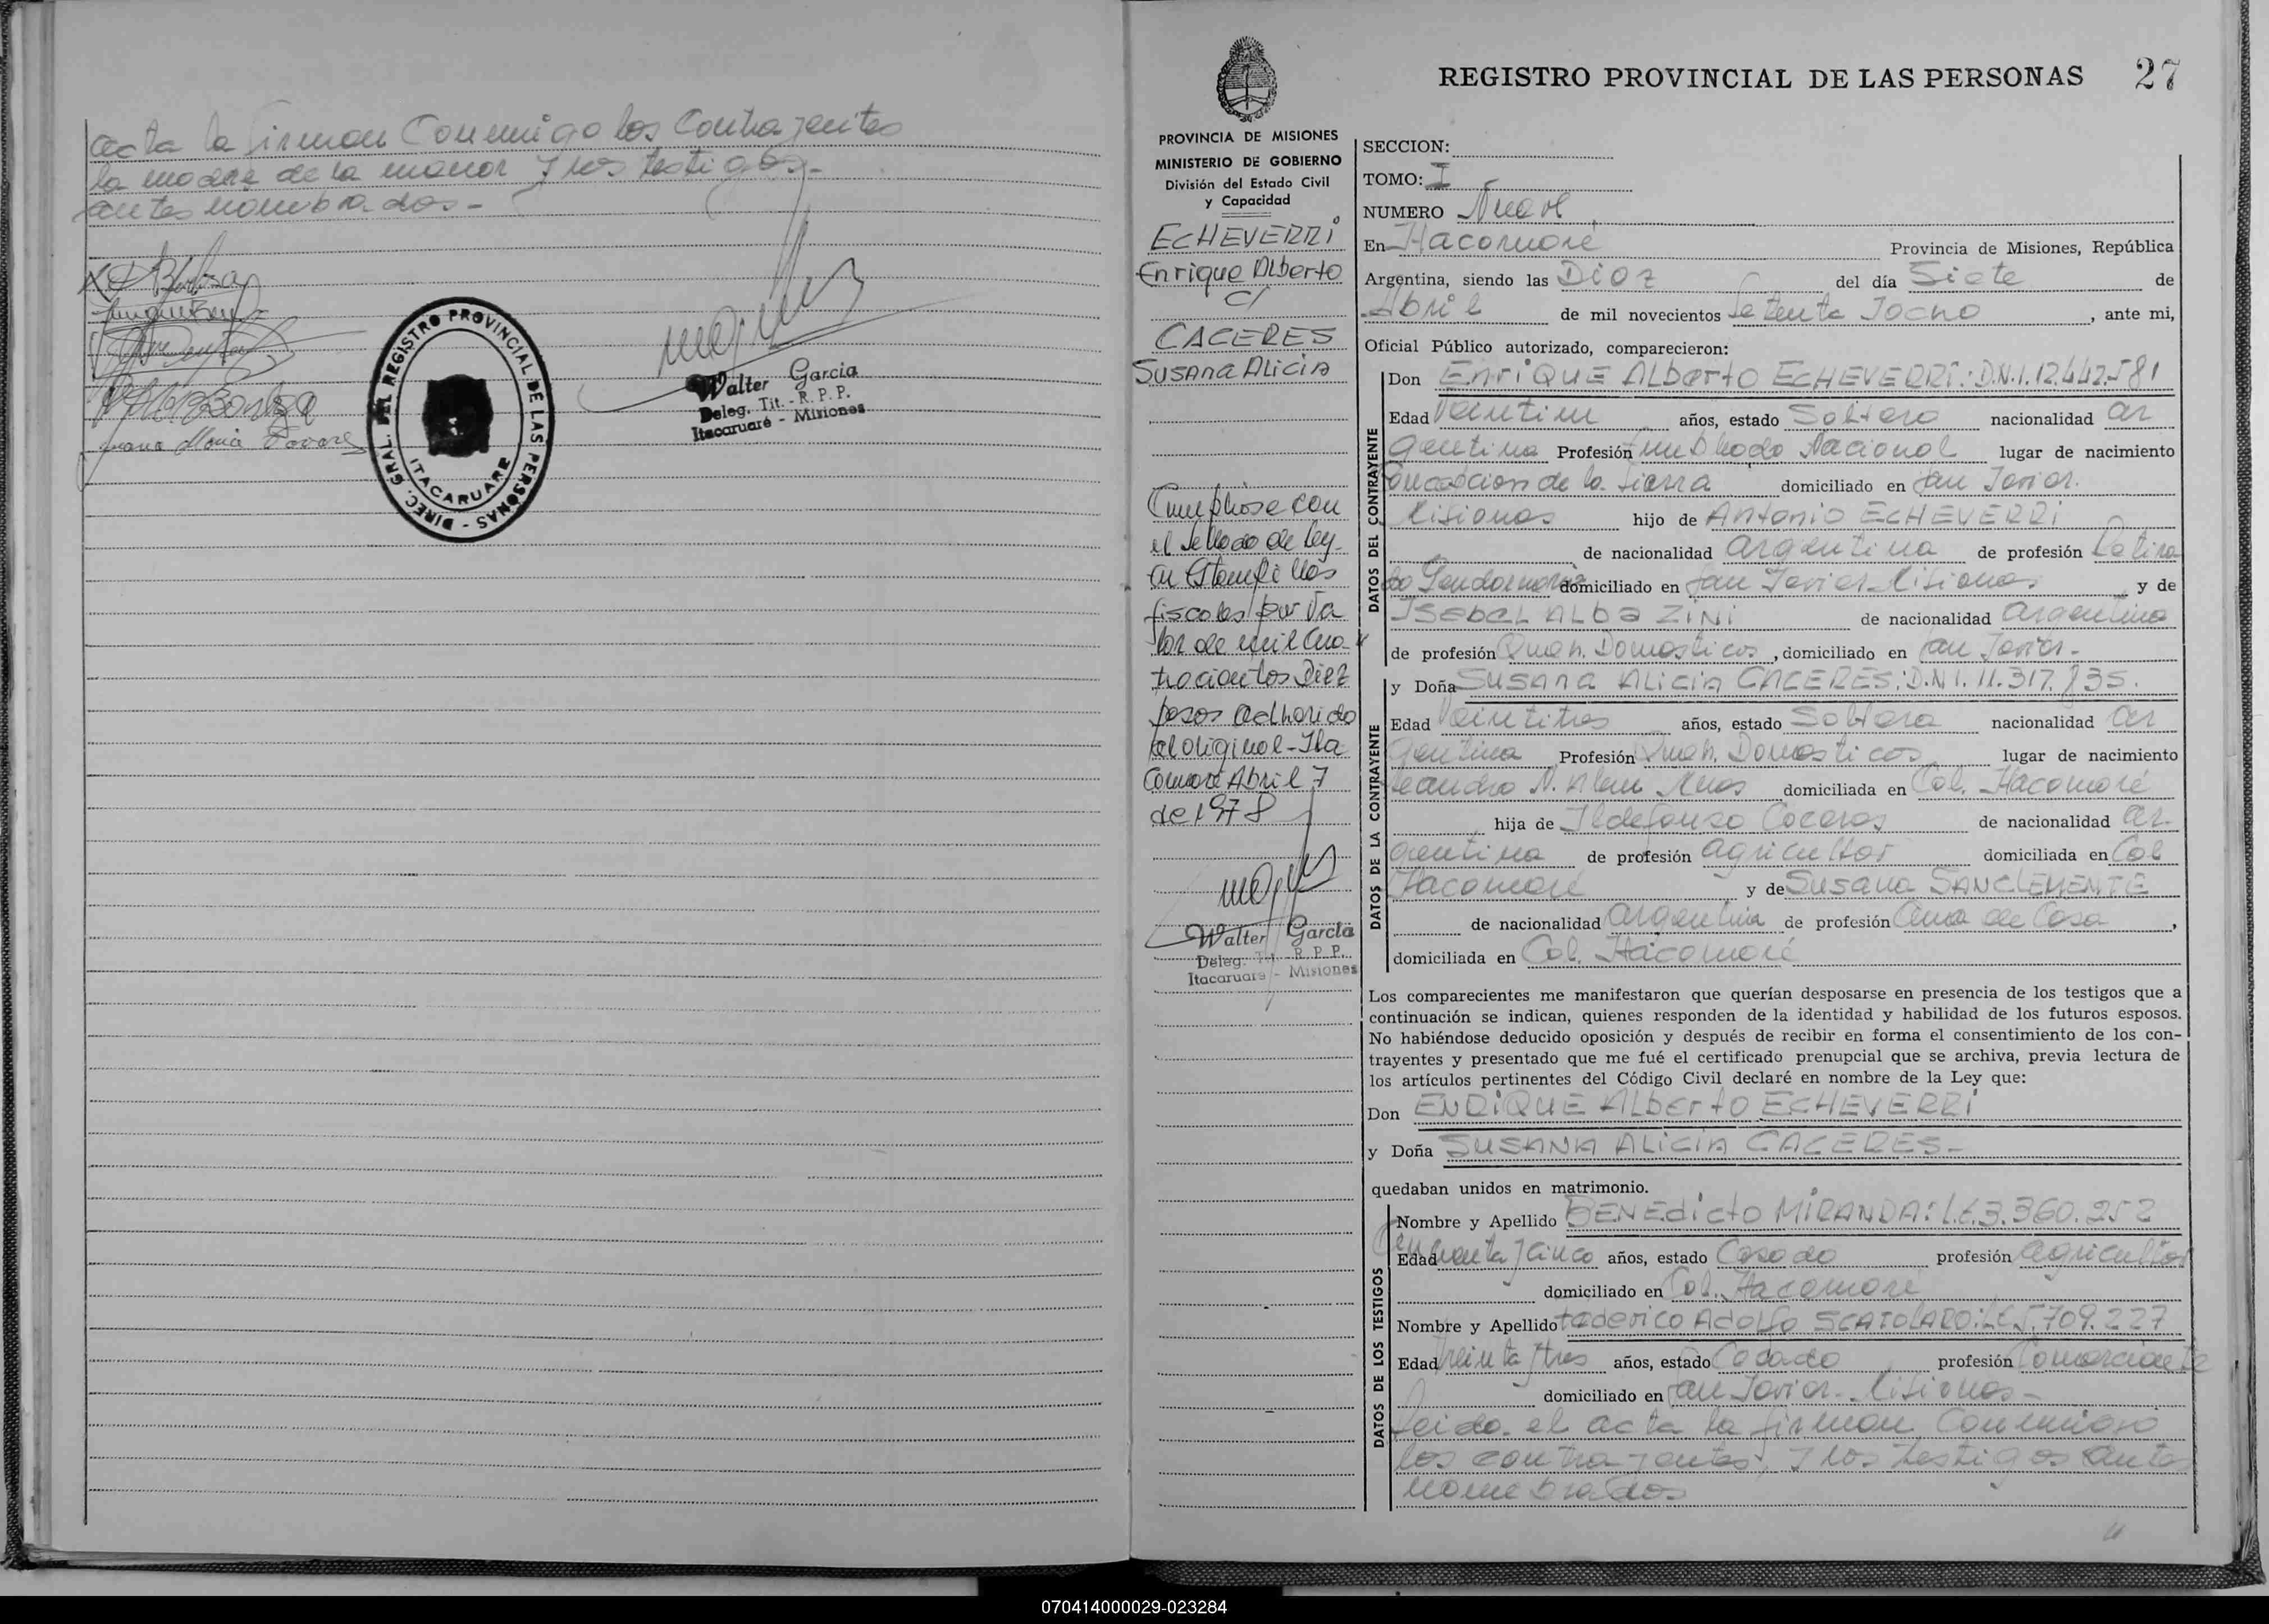 acta la firman Conmigo los Contrayentes
la madre de la menor y los testigos.-
antes nombrados.-
Juana Maria Tovares
DIREC. GRAL. DEL REGISTRO PROVINCIAL DE LAS PERSONAS -
ITACARUARE
Walter Garcia
Deleg. Tit. - R. P. P.
Itacaruaré - Misiones
PROVINCIA DE MISIONES
MINISTERIO DE GOBIERNO
División del Estado Civil
y Capacidad
ECHEVERRi
Enrique Alberto
c/
CACERES
SUSAna Alicia
Cumpliose con
el sellado de ley
en Estampillas
fiscales por va
lor de mil cua-
trocientos Diez
pesos adherido
al original - Ita
caruaré Abril 7
de 1978
Walter Garcia
Deleg. Tit. R. P. P.
Itacaruare - Misiones
REGISTRO PROVINCIAL DE LAS PERSONAS 27
SECCION:
TOMO: I
NUMERO Nueve
En Itacaruaré Provincia de Misiones, República
Argentina, siendo las Diez del día Siete de
Abril de mil novecientos Setenta Yocho, ante mi,
Oficial Público autorizado, comparecieron:
DATOS DEL CONTRAYENTE
Don EnriQUE Alberto ECHEVERRi: D.N.I. 12.442.581
Edad Veintiun años, estado Soltero nacionalidad ar
gentina Profesión Empleado Nacional lugar de nacimiento
Concepcion de la Sierra domiciliado en San Javier.
Misiones hijo de Antonio ECHEVERRi
de nacionalidad argentina de profesión Retira
do Gendarmeria domiciliado en San Javier Misiones y de
ISabel Alba Zini de nacionalidad argentina
de profesión Queh. Domesticos, domiciliado en San Javier.-
DATOS DE LA CONTRAYENTE
y Doña Susana Alicia CACERES: D.N.I. 11.317.835.
Edad Veintitres años, estado Soltera nacionalidad ar
gentina Profesión Queh. Domesticos lugar de nacimiento
Leandro N. Alem Mnes domiciliada en Col. Itacaruaré
hija de Ildefonso Caceres de nacionalidad ar-
gentina de profesión agricultor domiciliada en Col
Itacaruaré y de Susana SANCLEMENTE
de nacionalidad argentina de profesión Ama de Casa,
domiciliada en Col. Itacaruaré
Los comparecientes me manifestaron que querían desposarse en presencia de los testigos que a
continuación se indican, quienes responden de la identidad y habilidad de los futuros esposos.
No habiéndose deducido oposición y después de recibir en forma el consentimiento de los con-
trayentes y presentado que me fué el certificado prenupcial que se archiva, previa lectura de
los artículos pertinentes del Código Civil declaré en nombre de la Ley que:
Don ENRiQUE Alberto ECHEVERRi
y Doña SUSANA ALiCiA CACERES-
quedaban unidos en matrimonio.
DATOS DE LOS TESTIGOS
Nombre y Apellido BENEdicto MiRANDA: L.E. 3.360.252
Edad Cincuenta Ycinco años, estado Casado profesión agricultor
domiciliado en Col. Itacaruaré
Nombre y Apellido Federico Adolfo SCATOLARO: L.E. 5.709.227
Edad Treinta Ytres años, estado Casado profesión Comerciante
domiciliado en San Javier. Misiones-
Leido el acta la firman Conmigo
los contrayentes, y los testigos antes
nombrados
070414000029-023284